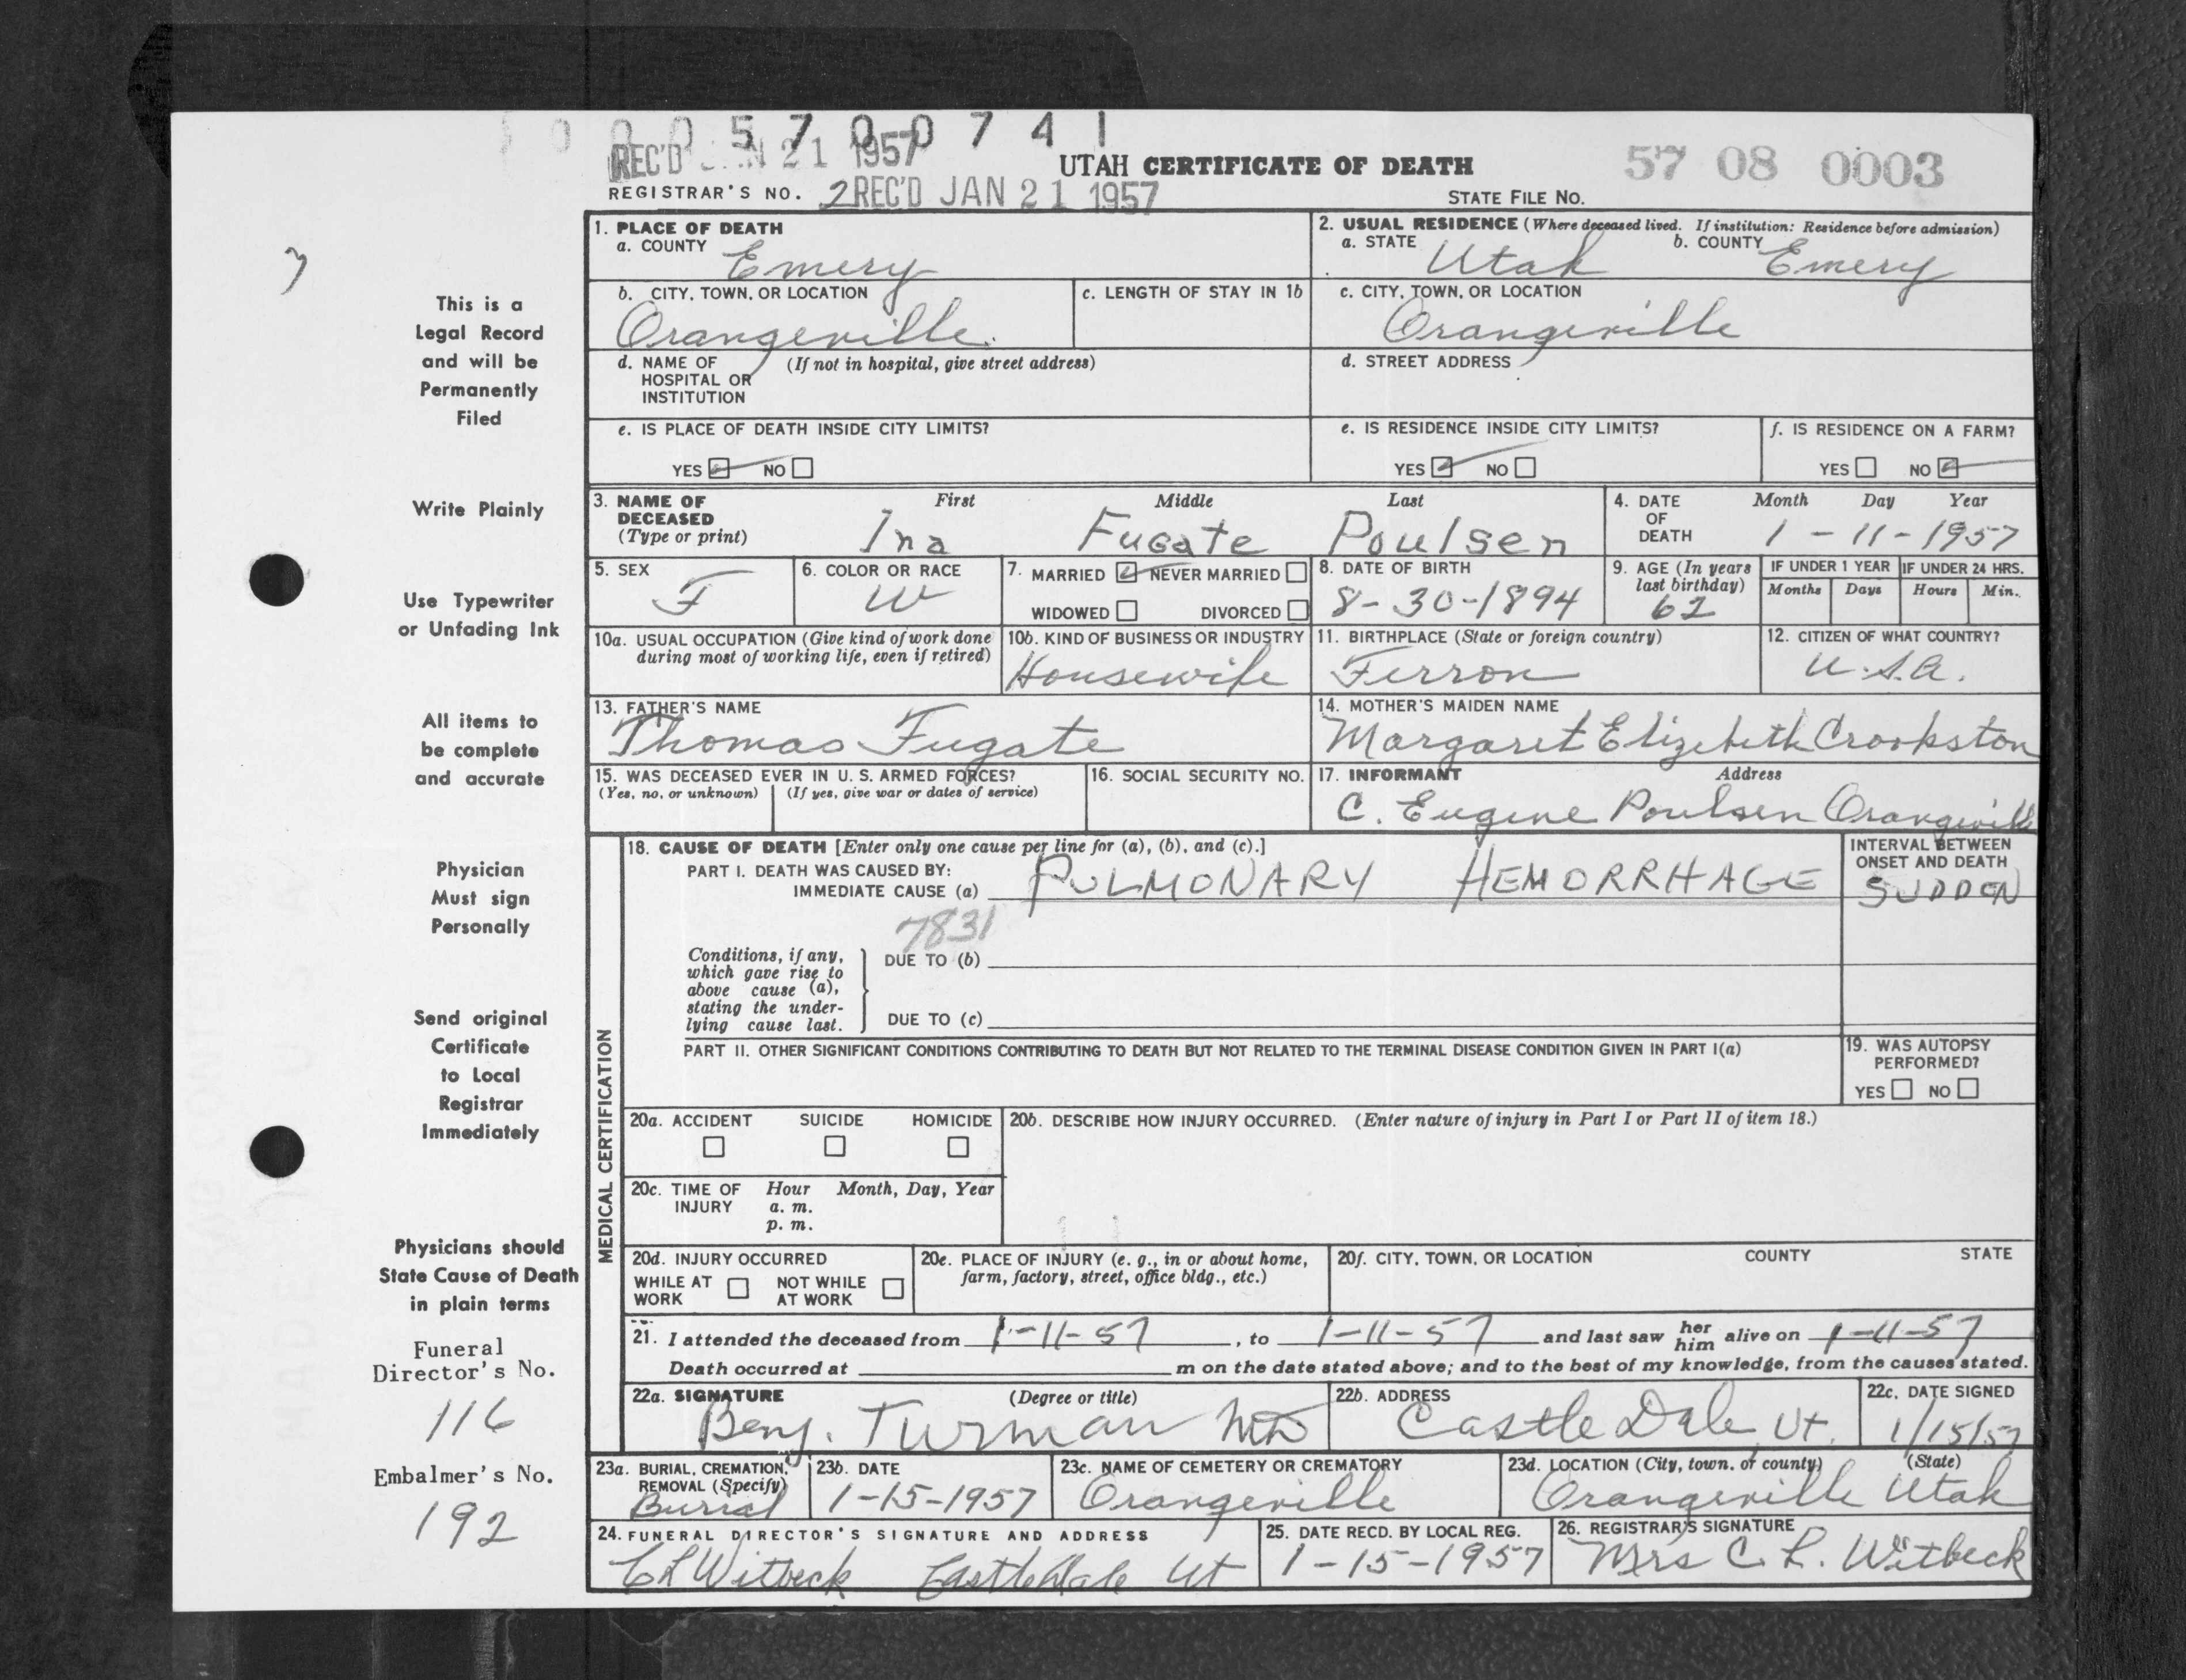 0 0 0 5 7 0 0 7 4 1
REC'D JAN 21 1957
UTAH CERTIFICATE OF DEATH
57 08 0003
REGISTRAR'S NO. 2 REC'D JAN 21 1957
STATE FILE NO.
1. PLACE OF DEATH
a. COUNTY Emery
2. USUAL RESIDENCE (Where deceased lived. If institution: Residence before admission)
a. STATE Utah b. COUNTY Emery
b. CITY, TOWN, OR LOCATION Orangeville.
c. LENGTH OF STAY IN 1b
c. CITY, TOWN, OR LOCATION Orangeville
d. NAME OF HOSPITAL OR INSTITUTION (If not in hospital, give street address)
d. STREET ADDRESS
e. IS PLACE OF DEATH INSIDE CITY LIMITS?
YES NO
e. IS RESIDENCE INSIDE CITY LIMITS?
YES NO
f. IS RESIDENCE ON A FARM?
YES NO
3. NAME OF DECEASED (Type or print)
First Middle Last
Ina Fugate Poulsen
4. DATE OF DEATH
Month Day Year
1-11-1957
5. SEX F
6. COLOR OR RACE W
7. MARRIED NEVER MARRIED
WIDOWED DIVORCED
8. DATE OF BIRTH 8-30-1894
9. AGE (In years last birthday) 62
IF UNDER 1 YEAR
Months Days
IF UNDER 24 HRS.
Hours Min.
10a. USUAL OCCUPATION (Give kind of work done during most of working life, even if retired)
10b. KIND OF BUSINESS OR INDUSTRY
Housewife
11. BIRTHPLACE (State or foreign country)
Ferron
12. CITIZEN OF WHAT COUNTRY?
U.S.A.
13. FATHER'S NAME
Thomas Fugate
14. MOTHER'S MAIDEN NAME
Margaret Elizebeth Crookston
15. WAS DECEASED EVER IN U. S. ARMED FORCES?
(Yes, no, or unknown) (If yes, give war or dates of service)
16. SOCIAL SECURITY NO.
17. INFORMANT Address
C. Eugene Poulsen Orangeville
MEDICAL CERTIFICATION
18. CAUSE OF DEATH [Enter only one cause per line for (a), (b), and (c).]
PART I. DEATH WAS CAUSED BY:
IMMEDIATE CAUSE (a) PULMONARY HEMORRHAGE
INTERVAL BETWEEN ONSET AND DEATH
SUDDEN
7831
Conditions, if any, which gave rise to above cause (a), stating the underlying cause last.
DUE TO (b)
DUE TO (c)
PART II. OTHER SIGNIFICANT CONDITIONS CONTRIBUTING TO DEATH BUT NOT RELATED TO THE TERMINAL DISEASE CONDITION GIVEN IN PART I(a)
19. WAS AUTOPSY PERFORMED?
YES NO
20a. ACCIDENT SUICIDE HOMICIDE
20b. DESCRIBE HOW INJURY OCCURRED. (Enter nature of injury in Part I or Part II of item 18.)
20c. TIME OF INJURY Hour Month, Day, Year
a. m.
p. m.
20d. INJURY OCCURRED
WHILE AT WORK NOT WHILE AT WORK
20e. PLACE OF INJURY (e. g., in or about home, farm, factory, street, office bldg., etc.)
20f. CITY, TOWN, OR LOCATION COUNTY STATE
21. I attended the deceased from 1-11-57, to 1-11-57 and last saw her him alive on 1-11-57
Death occurred at m on the date stated above; and to the best of my knowledge, from the causes stated.
22a. SIGNATURE (Degree or title)
Benj. Turman MD
22b. ADDRESS
Castle Dale Ut.
22c. DATE SIGNED
1/15/57
23a. BURIAL, CREMATION, REMOVAL (Specify)
Burial
23b. DATE
1-15-1957
23c. NAME OF CEMETERY OR CREMATORY
Orangeville
23d. LOCATION (City, town, or county) (State)
Orangeville Utah
24. FUNERAL DIRECTOR'S SIGNATURE AND ADDRESS
CL Witbeck Castle Dale Ut
25. DATE RECD. BY LOCAL REG.
1-15-1957
26. REGISTRAR'S SIGNATURE
Mrs C. L. Witbeck
This is a
Legal Record
and will be
Permanently
Filed
Write Plainly
Use Typewriter
or Unfading Ink
All items to
be complete
and accurate
Physician
Must sign
Personally
Send original
Certificate
to Local
Registrar
Immediately
Physicians should
State Cause of Death
in plain terms
Funeral
Director's No.
116
Embalmer's No.
192